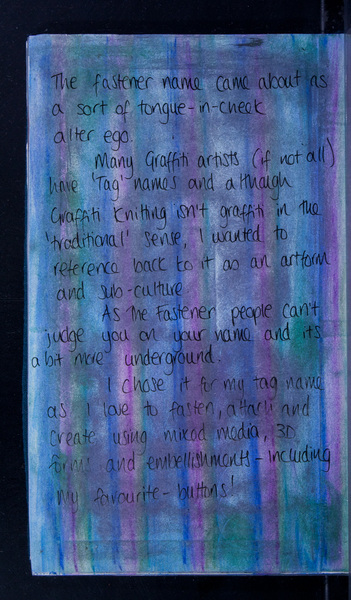 The fastener name came about as
a sort of tongue-in-cheek
alter ego.
Many Graffiti artists (if not all)
have 'Tag' names and although
Graffiti Knitting isn't graffiti in the
'traditional' sense, I wanted to
reference back to it as an artform
and sub-culture
As the Fastener people can't
judge you on your name and its
a bit more underground.
I chose it for my tag name
as I love to fasten, attach and
create using mixed media, 3D
forms and embellishments - including
my favourite - buttons!